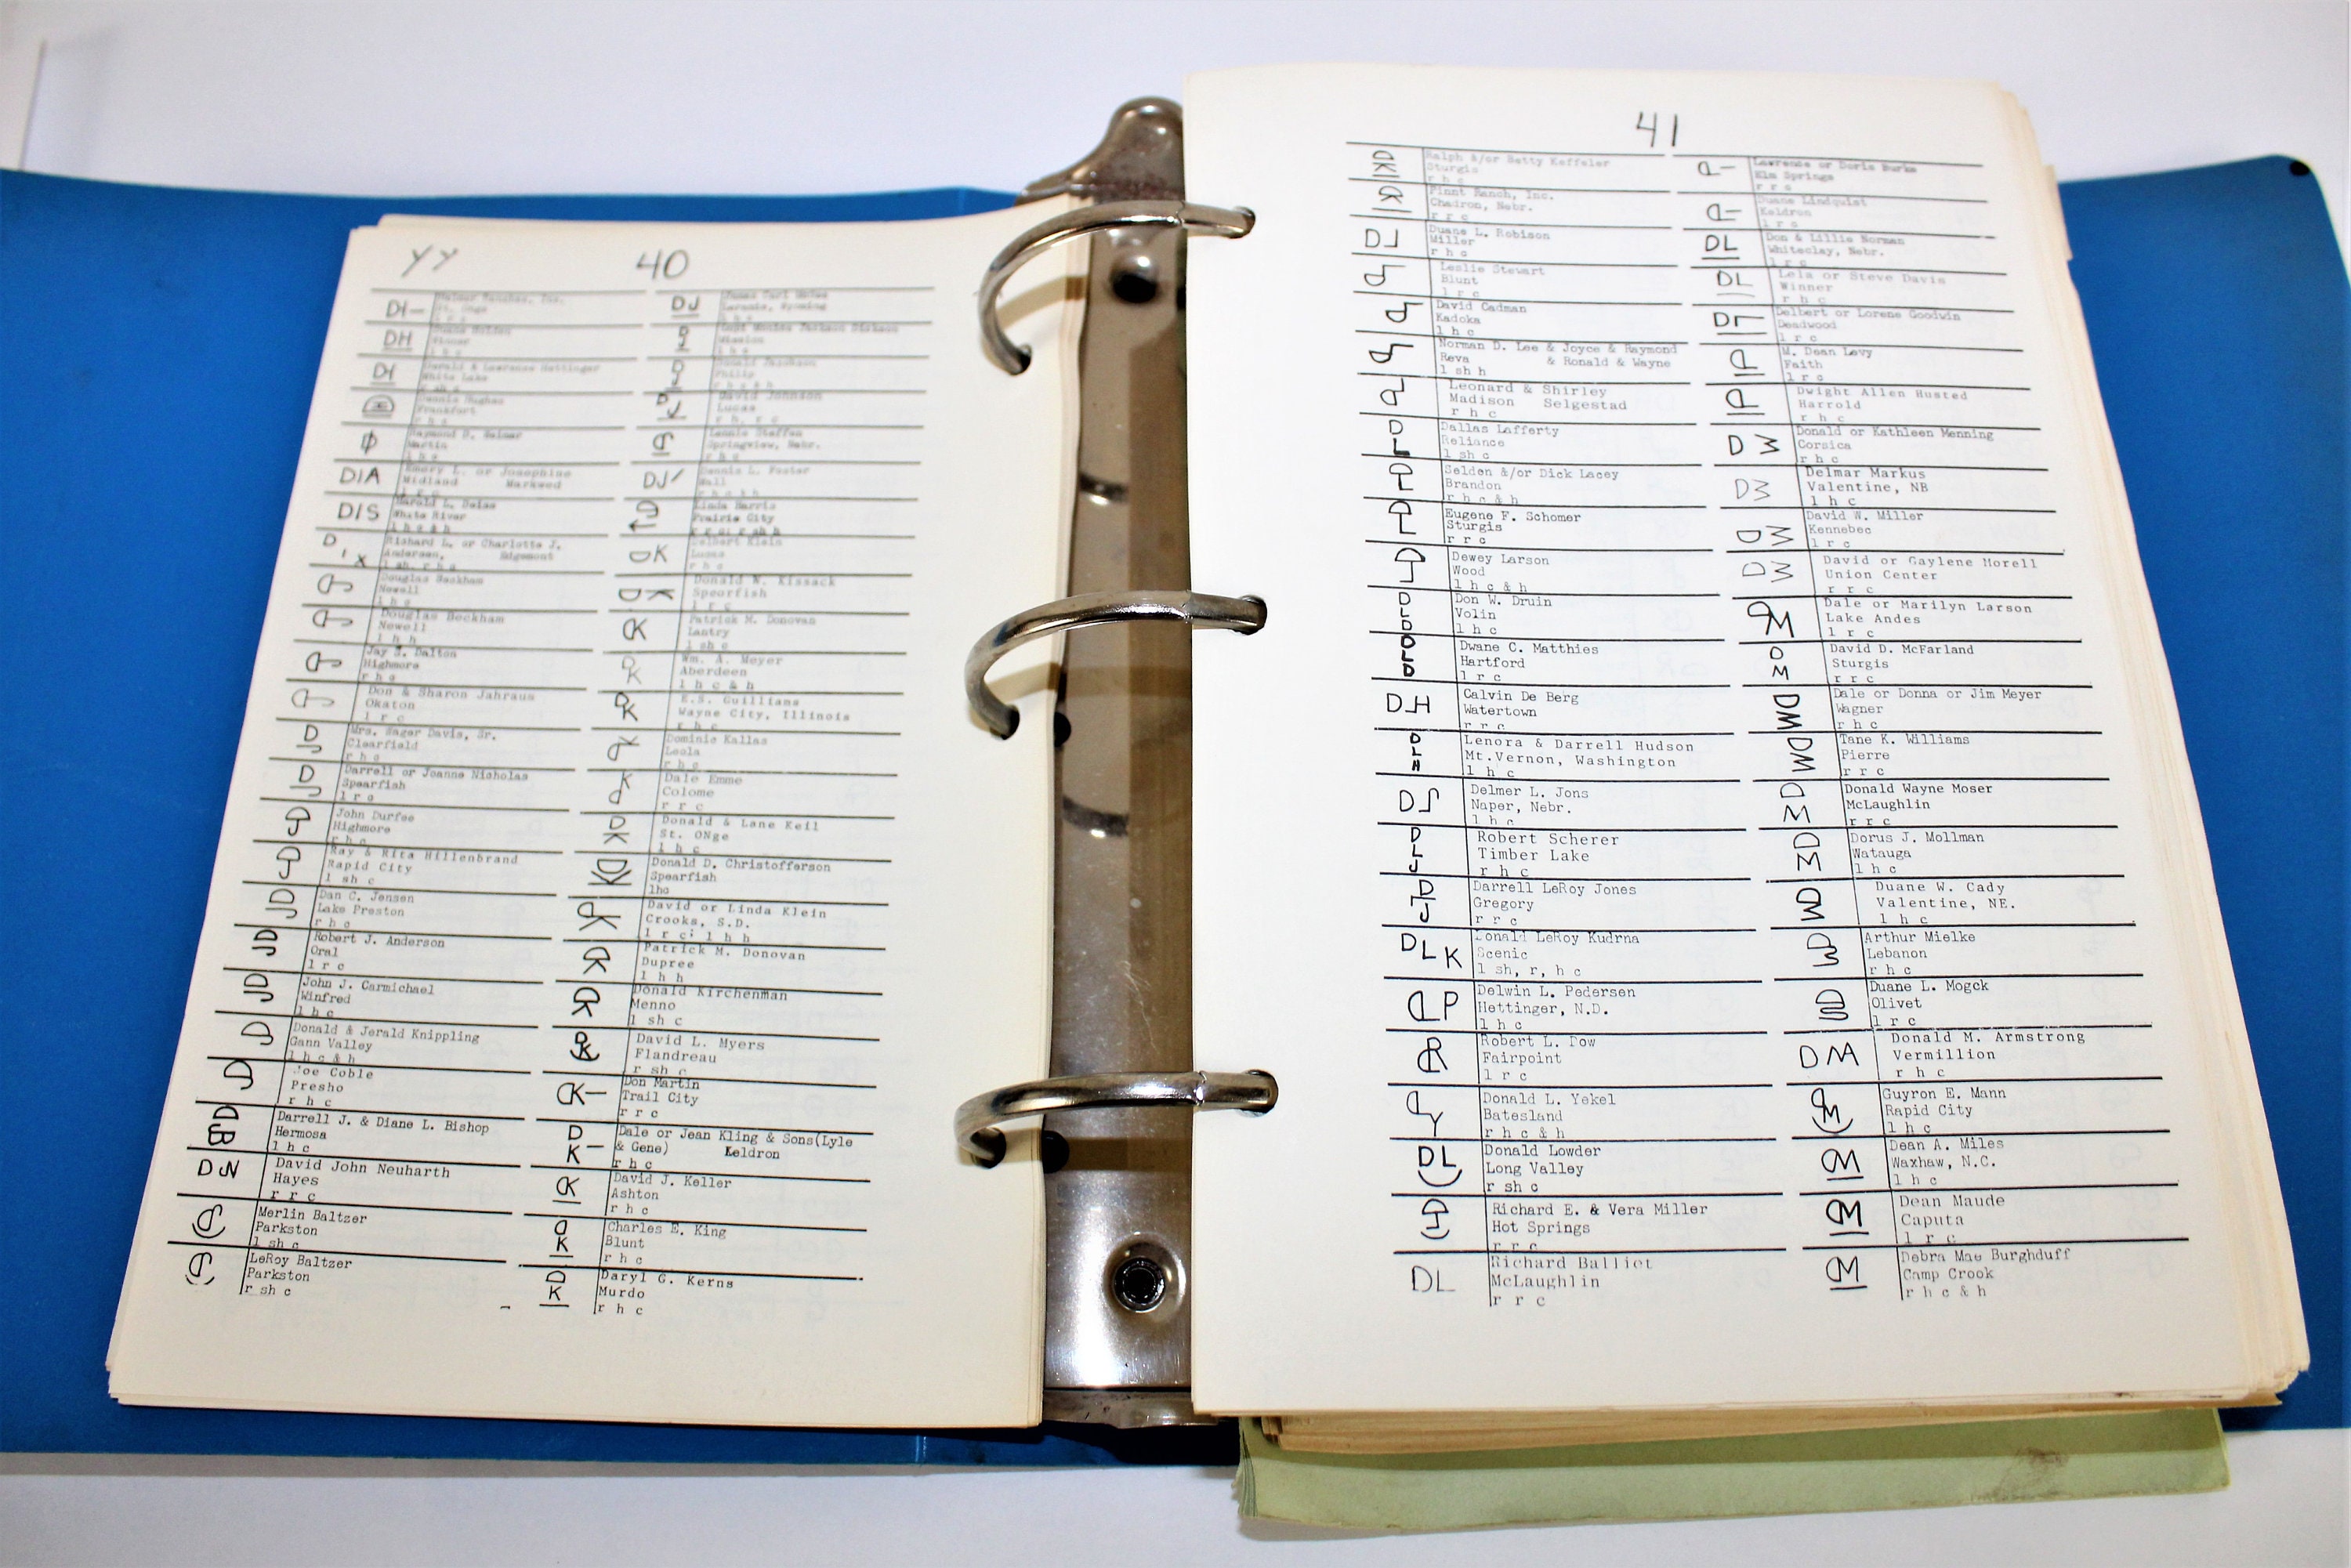 YY
40
DH
Dennis Hughes
Frankfurt
r h c
Martin
l h c
DIA
Emery L. or Josephine
Midland Markwed
l r c
DIS
White River
l h c & h
Richard L. or Charlotte J.
Andersen, Edgemont
l sh, r h c
Newell
l h c
Douglas Beckham
Newell
l h h
Jay S. Dalton
Highmore
r h c
Don & Sharon Jahraus
Okaton
l r c
Mrs. Sager Davis, Sr.
Clearfield
r h c
Darrell or Joanne Nicholas
Spearfish
l r c
John Durfee
Highmore
r h c
Ray & Rita Hillenbrand
Rapid City
l sh c
Dan C. Jensen
Lake Preston
r h c
Robert J. Anderson
Oral
l r c
John J. Carmichael
Winfred
l h c
Donald & Jerald Knippling
Gann Valley
l h c & h
Joe Coble
Presho
r h c
Darrell J. & Diane L. Bishop
Hermosa
l h c
David John Neuharth
Hayes
r r c
Merlin Baltzer
Parkston
l sh c
LeRoy Baltzer
Parkston
r sh c
DJ
Laramie, Wyoming
l h c
Mission
l h c
Philip
r h c & h
David Johnson
Lucas
r h, r c
Lennis Steffen
Springview, Nebr.
r h c
DJ/
Dennis L. Foster
Wall
r h c & h
Linda Harris
Prairie City
DK
Delbert Klein
Lucas
r h c
Donald W. Kissack
Spearfish
l r c
Patrick M. Donovan
Lantry
l sh c
Wm. A. Meyer
Aberdeen
l h c & h
E.S. Guilliams
Wayne City, Illinois
r h c
Dominic Kallas
Leola
r h c
Dale Emme
Colome
r r c
Donald & Lane Keil
St. ONge
l h c
Donald D. Christofferson
Spearfish
lhc
David or Linda Klein
Crooks, S.D.
l r c; l h h
Patrick M. Donovan
Dupree
l h h
Donald Kirchenman
Menno
l sh c
David L. Myers
Flandreau
r sh c
Don Martin
Trail City
r r c
Dale or Jean Kling & Sons(Lyle
& Gene) Keldron
r h c
David J. Keller
Ashton
r h c
Charles E. King
Blunt
r h c
Daryl G. Kerns
Murdo
r h c
41
Ralph &/or Betty Keffeler
Sturgis
r h c
Chadron, Nebr.
r r c
Duane L. Robison
Miller
r h c
Leslie Stewart
Blunt
l r c
David Cadman
Kadoka
l h c
Norman D. Lee & Joyce & Raymond
Reva & Ronald & Wayne
l sh h
Leonard & Shirley
Madison Selgestad
r h c
Dallas Lafferty
Reliance
l sh c
Selden &/or Dick Lacey
Brandon
r h c & h
Eugene F. Schomer
Sturgis
r r c
Dewey Larson
Wood
l h c & h
Don W. Druin
Volin
l h c
Dwane C. Matthies
Hartford
l r c
Calvin De Berg
Watertown
r r c
Lenora & Darrell Hudson
Mt.Vernon, Washington
l h c
Delmer L. Jons
Naper, Nebr.
l h c
Robert Scherer
Timber Lake
r h c
Darrell LeRoy Jones
Gregory
r r c
DLK
Donald LeRoy Kudrna
Scenic
l sh, r, h c
Delwin L. Pedersen
Hettinger, N.D.
l h c
Robert L. Dow
Fairpoint
l r c
Donald L. Yekel
Batesland
r h c & h
DL
Donald Lowder
Long Valley
r sh c
Richard E. & Vera Miller
Hot Springs
r r c
DL
Richard Balliet
McLaughlin
r r c
Lawrence or Doris Burke
Elm Springs
r r c
Duane Lindquist
Keldron
l r c
DL
Don & Lillie Norman
Whiteclay, Nebr.
l r c
DL
Lela or Steve Davis
Winner
r h c
Delbert or Lorene Goodwin
Deadwood
l r c
M. Dean Levy
Faith
l r c
Dwight Allen Husted
Harrold
r h c
Donald or Kathleen Menning
Corsica
r h c
Delmar Markus
Valentine, NB
l h c
David W. Miller
Kennebec
l r c
David or Gaylene Morell
Union Center
r r c
Dale or Marilyn Larson
Lake Andes
l r c
David D. McFarland
Sturgis
r r c
Dale or Donna or Jim Meyer
Wagner
r h c
Tane K. Williams
Pierre
r r c
Donald Wayne Moser
McLaughlin
r r c
Dorus J. Mollman
Watauga
l h c
Duane W. Cady
Valentine, NE.
l h c
Arthur Mielke
Lebanon
r h c
Duane L. Mogck
Olivet
l r c
Donald M. Armstrong
Vermillion
r h c
Guyron E. Mann
Rapid City
l h c
Dean A. Miles
Waxhaw, N.C.
l h c
Dean Maude
Caputa
l r c
Debra Mae Burghduff
Camp Crook
r h c & h